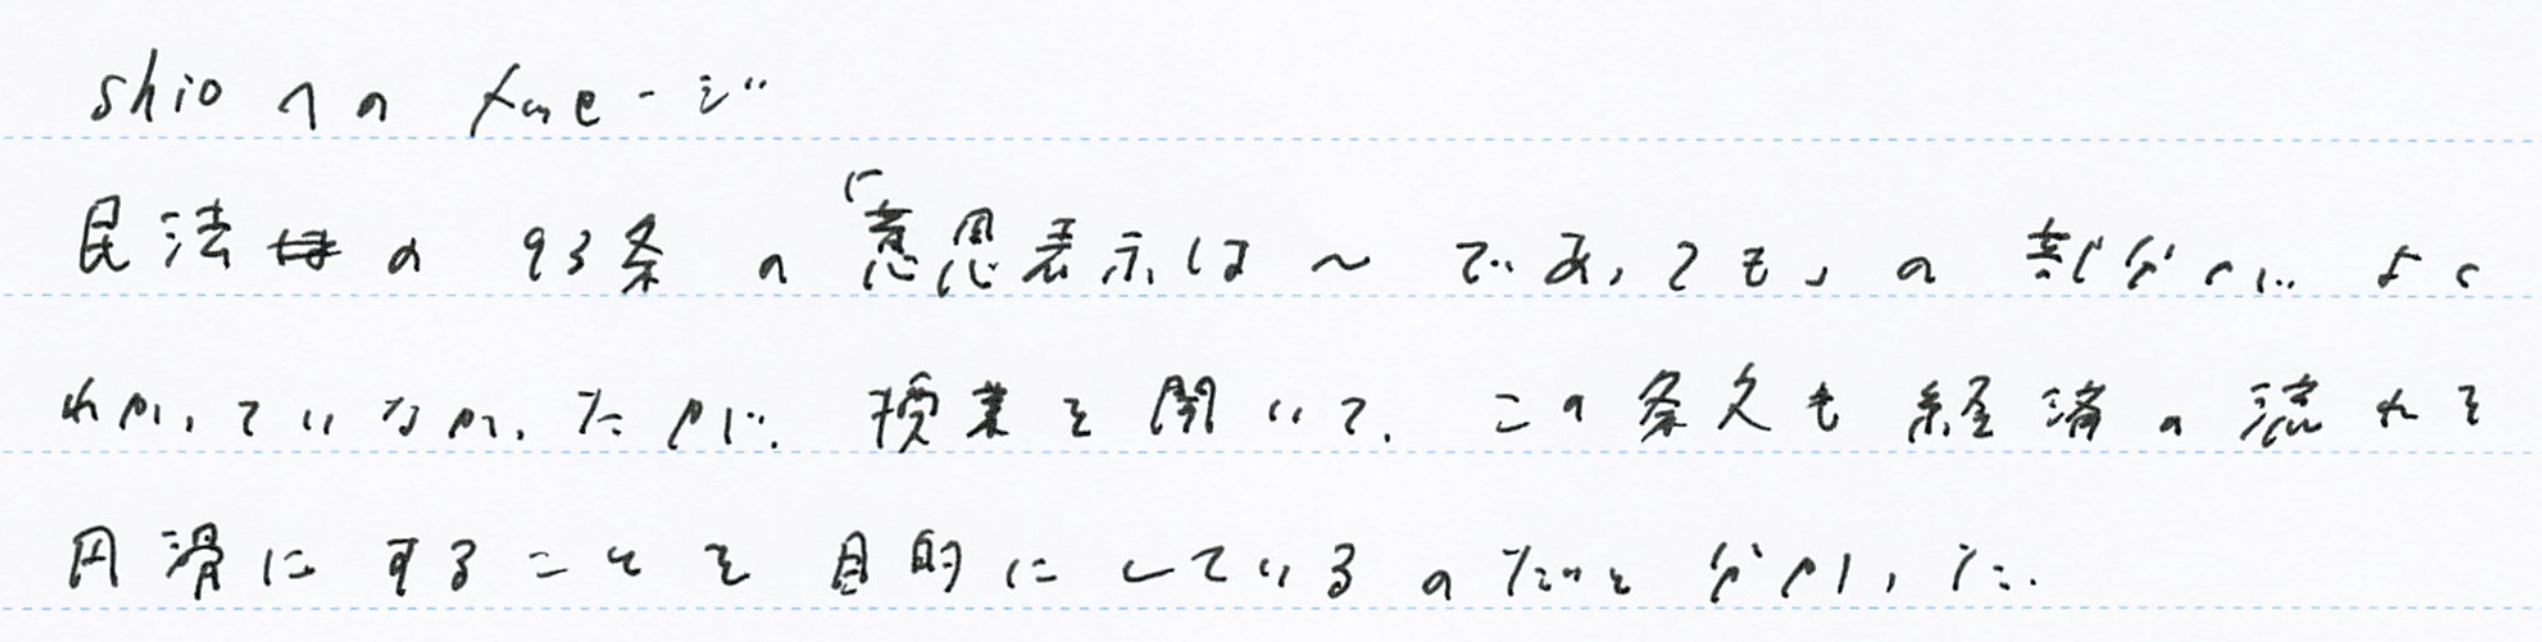 shioへのメッセージ
民法の 93条の「意思表示は〜であっても」の部分がよく
わかっていなかったが、授業を聞いて、この条文も経済の流れを
円滑にすることを目的にしているのだと分かった.